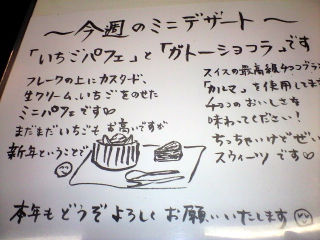 ～今週のミニデザート～
「いちごパフェ」と「ガトーショコラ」です
フレークの上にカスタード、
生クリーム、いちごをのせた
ミニパフェです♡
まだまだいちごも お高いですが
新年ということで
スイスの最高級チョコブラ
「カルマ」を使用してます
チョコのおいしさを
味わってください!
ちっちゃいけどぜい
スウィーツです♡
本年もどうぞよろしくお願いいたします